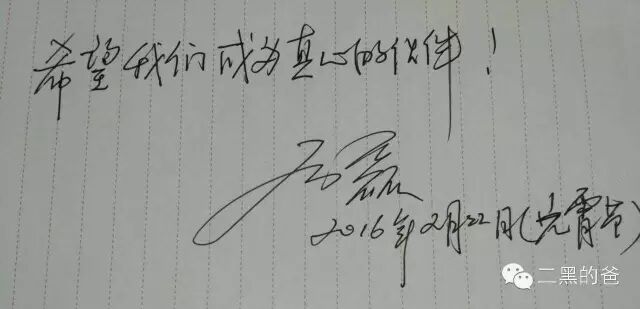 希望我们成为真心的伙伴！
磊
2016年2月22日(元宵节)
二黑的爸